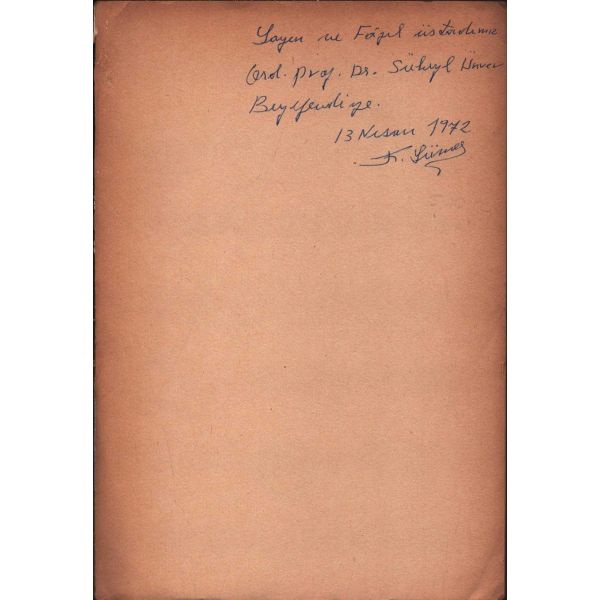 Sayın ve Fâzıl üstadımız
Ord. Prof. Dr. Süheyl Ünver
Beyefendiye.
13 Nisan 1972
F. Sümer